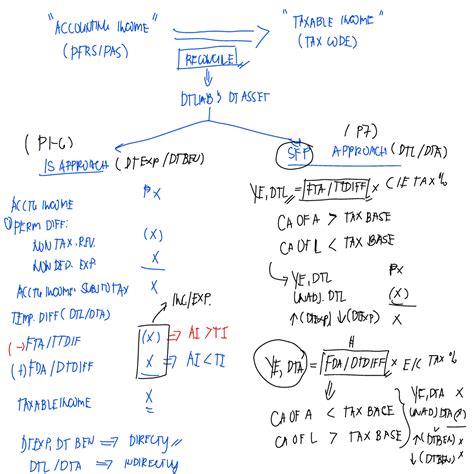 "ACCOUNTING INCOME"
(PFRS/PAS)
"TAXABLE INCOME"
(TAX CODE)
RECONCILE
DTLIAB & DT ASSET
(P1-6)
IS APPROACH (DT EXP / DT BEN)
ACCTG INCOME ₱X
① PERM DIFF:
NON TAX. REV. (X)
NON DED. EXP. X
ACCTG INCOME SUBJ TO TAX X
INC/EXP.
TEMP. DIFF (DTL/DTA)
(-) FTA/TTDIFF (X) ⇒ AI > TI
(+) FDA/DTDIFF X ⇒ AI < TI
TAXABLE INCOME X
DTEXP, DT BEN ⇒ DIRECTLY
DTL / DTA ⇒ INDIRECTLY
(P7)
SFP APPROACH (DTL/DTA)
YE, DTL = FTA/TTDIFF X TAX %
CA OF A > TAX BASE
CA OF L < TAX BASE
YE, DTL ₱X
UNADJ. DTL (X)
↑(DTEXP) ↓(DTEXP) X
YE, DTA = FDA/DTDIFF X E/C TAX %
CA OF A < TAX BASE
CA OF L > TAX BASE
YE, DTA ₱X
UNADJ DTA (X)
↑(DTBEN) X
↓(DTBEN)